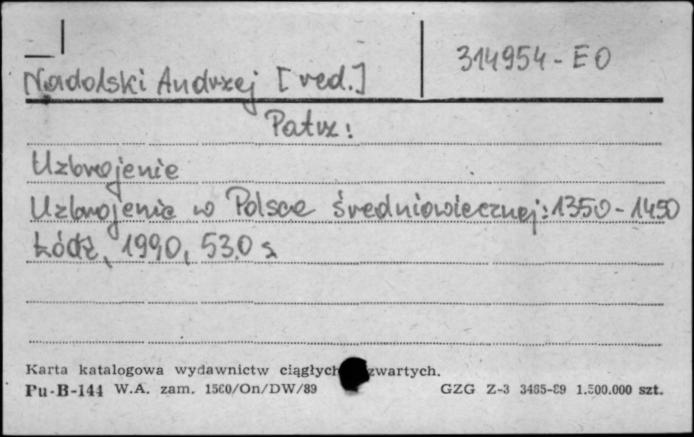 314954-EO
Nadolski Andrzej [red.]
Patrz:
Uzbrojenie
Uzbrojenie w Polsce średniowiecznej: 1350-1450
Łódź, 1990, 530 s
Karta katalogowa wydawnictw ciągłych zwartych.
Pu-B-144 W.A. zam. 1560/On/DW/89 GZG Z-3 3465-89 1.500.000 szt.